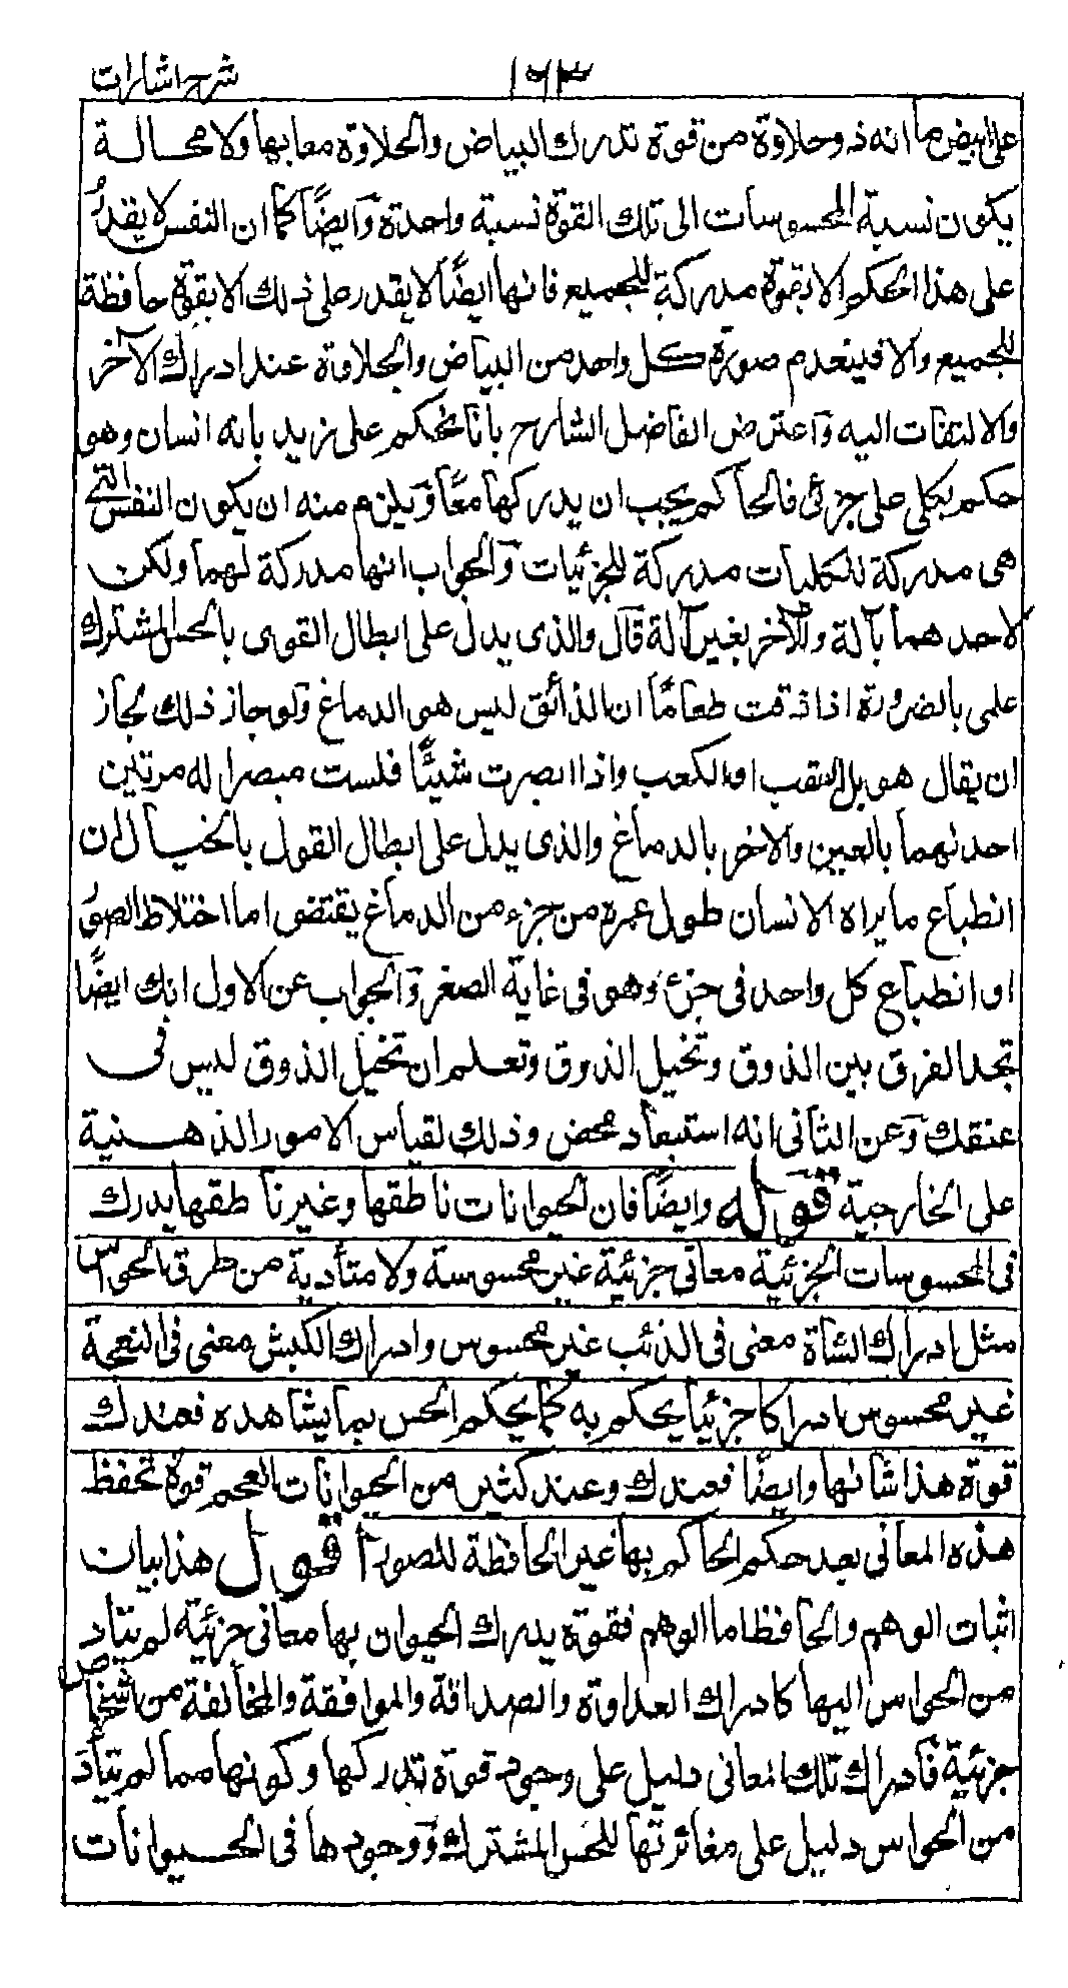 شرح اشارات ١٦٣
على ابيض ما انه ذو حلاوة من قوة تدرك البياض والحلاوة معا بها ولا محالة
يكون نسبة المحسوسات الى تلك القوة نسبة واحدة وايضًا كما ان النفس لا يقدرُ
على هذا الحكم الا بقوة مدركة للجميع فانها ايضًا لا يقدر على ذلك الا بقوة حافظة
للجميع والا فينعدم صورة كل واحد من البياض والحلاوة عند ادراك الآخر
والالتفات اليه واعترض الفاضل الشارح بانا نحكم على زيد بانه انسان وهو
حكم بكلى على جزئى فالحاكم يجب ان يدركها معًا ويلزم منه ان يكون النفس التى
هى مدركة للكليات مدركة للجزئيات والجواب انها مدركة لهما ولكن
لاحدهما بآلة وللآخر بغير آلة قال والذى يدل على ابطال القوى بالحس المشترك
علمى بالضرورة اذا ذقت طعامًا ان الذائق ليس هو الدماغ ولو جاز ذلك لجاز
ان يقال هو بل العقب او الكعب واذا ابصرت شيئًا فلست مبصرا له مرتين
احدٰهما بالعين والاخر بالدماغ والذى يدل على ابطال القول بالخيال ان
انطباع ما يراه الانسان طول عمره من جزء من الدماغ يقتضى اما اختلاط الصوُر
او انطباع كل واحد فى جزء وهو فى غاية الصغر والجواب عن الاول انك ايضًا
تجد الفرق بين الذوق وتخيل الذوق وتعلم ان تخيل الذوق ليس فى
عنقك وعن الثانى انه استبعاد محض وذلك لقياس الامور الذهنية
على الخارجية قوله وايضًا فان الحيوانات ناطقها وغير ناطقها يدرك
فى المحسوسات الجزئية معانى جزئية غير محسوسة ولا متأدية من طرق الحواس
مثل ادراك الشاة معنى فى الذئب غير محسوس وادراك الكبش معنى فى النعجة
غير محسوس ادراكا جزئيا يحكم به كما يحكم الحس بما يشاهده فعندك
قوة هذا شانها وايضًا فعندك وعند كثير من الحيوانات العجم قوة تحفظ
هذه المعانى بعد حكم الحاكم بها غير الحافظة للصور اقول هذا بيان
اثبات الوهم والحافظ اما الوهم فقوة يدرك الحيوان بها معانى جزئية لم يتاد
من الحواس اليها كادراك العداوة والصداقة والموافقة والمخالفة من اشخاص
جزئية فادراك تلك المعانى دليل على وجود قوة تدركها وكونها مما لم يتأد
من الحواس دليل على مغائرتها للحس المشترك ووجودها فى الحيوانات